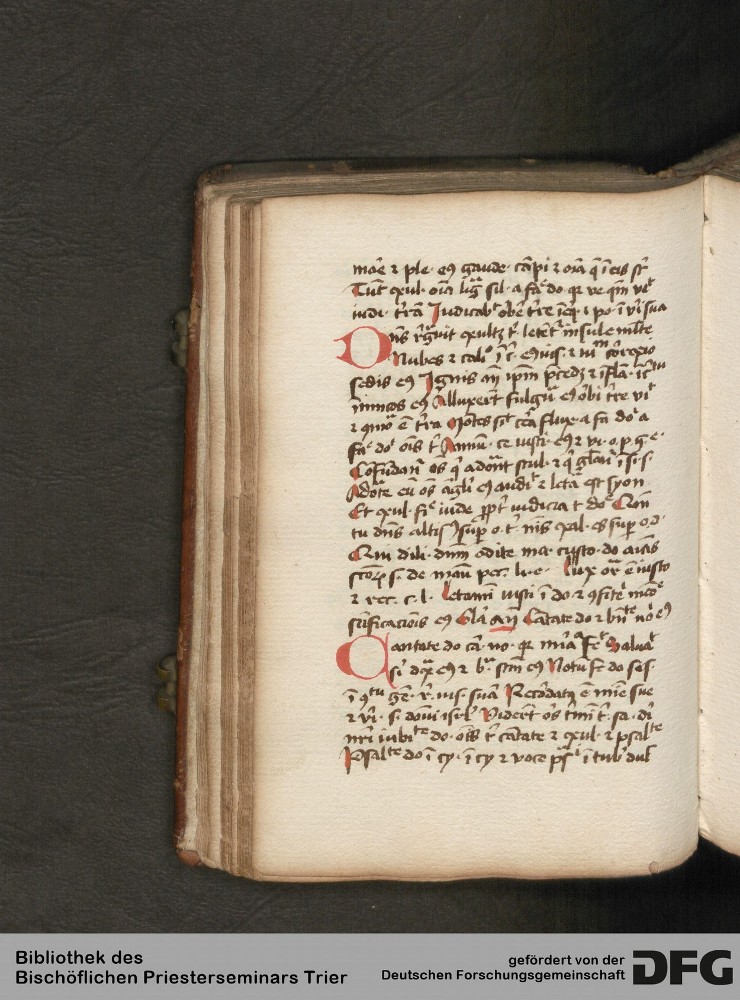 ma͛e ⁊ ple· eꝯ gaude· ca͞pi ⁊ oi͞a q̄ i͞ eis st̄
Tu͞t exul· oi͞a lig͞ sil· a fa͛ do qr ve qm̄ vē͛
iudi· t͛ra͞ Judicab͛ obe͛ t͛re i͞ eq͛· ⁊ po· i͞ v͛i sua
Dn̄s r͛gūit exultꝫ t͛· lete͛t͛ insule ml̄te
Nubes ⁊ cali͛ i͞ c͛·
sedis eꝯ Ignis an̄ ip̄m p͛cedꝫ ⁊ i͞fla·
i͞nimcos eꝯ Alluxer͛t fulgu͛ eꝯ obi t͛re vi͛
⁊ e͞ t͛ra Mo͞tes sic͛ ce͛a flux· a fa do͛ a
fa͛ do͛ ois͞ t͛ An̄nu͞· ce iusti· eꝯ ⁊ vi· o· p· g͛·
Co͞fuda͞n͛ os͞ q͛ ado͛nt scul· ⁊ q͛ gl̄an͛ i͞ si· s·
Ado͛te eu͞ os͞ a͞gl̄i eꝯ audi͛ ⁊ leta͛ est syon
Et exul· fi͛e iude ꝓpt͛ iudicia t͛ do͛ Qm͞
tu dn̄s altis· sup͛ o· t͛· nis͞ exal· es sup͛ o· d·
Qui dili· dnm͞ odite ma· custo· do ai͞as
sco͛ꝝ s· de ma͞u pec· li· e· Lux or͛ e͞ iusto
⁊ rec· c· l· Letami͛ iusti i͞ do· ⁊ ꝯfite͛
scīficaciois͞ eꝯ Gl͛a an̄ Ca͞tate do ⁊ bn̄te no͛i eꝯ
Cantate do ca͞· no· qr mi͛a fe͛ Salua͛
si͛ dex͛ eꝯ ⁊ b͛· scm̄ eꝯ Notu͞ fe͛ do sal·
i͞ ꝯtu ge͞· r͛· ius· sua͞ Recordatꝯ e͞ mi͞e sue
⁊ v͛i· s· domui isr͛l Viderͤt os͞ t͛mi͞ t͛· sa· di͛
nr͛i iubite do· ois͞ t͛ ca͞tate ⁊ exul· ⁊ psalte
Psalte do i͞ cy· i͞ cy ⁊ voce ps͛i i͞ tub͛ duc͛
Bibliothek des
Bischöflichen Priesterseminars Trier
gefördert von der
Deutschen Forschungsgemeinschaft
DFG